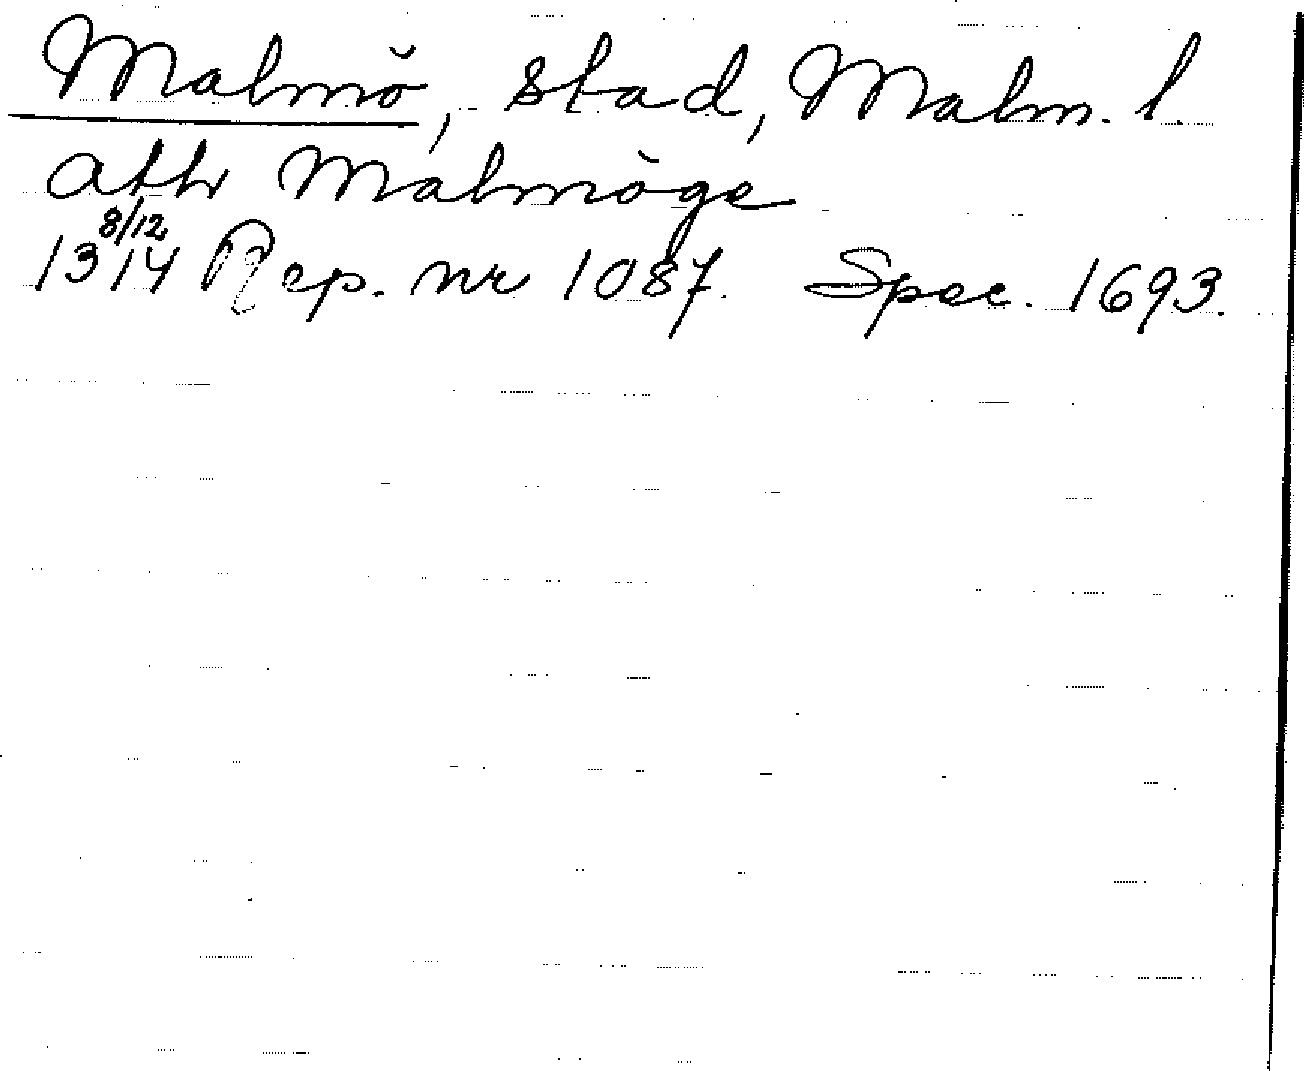 Malmö, stad, Malm. l.
ath Malmöge
13 8/12 14 Rep. nr 1087. Spec. 1693.